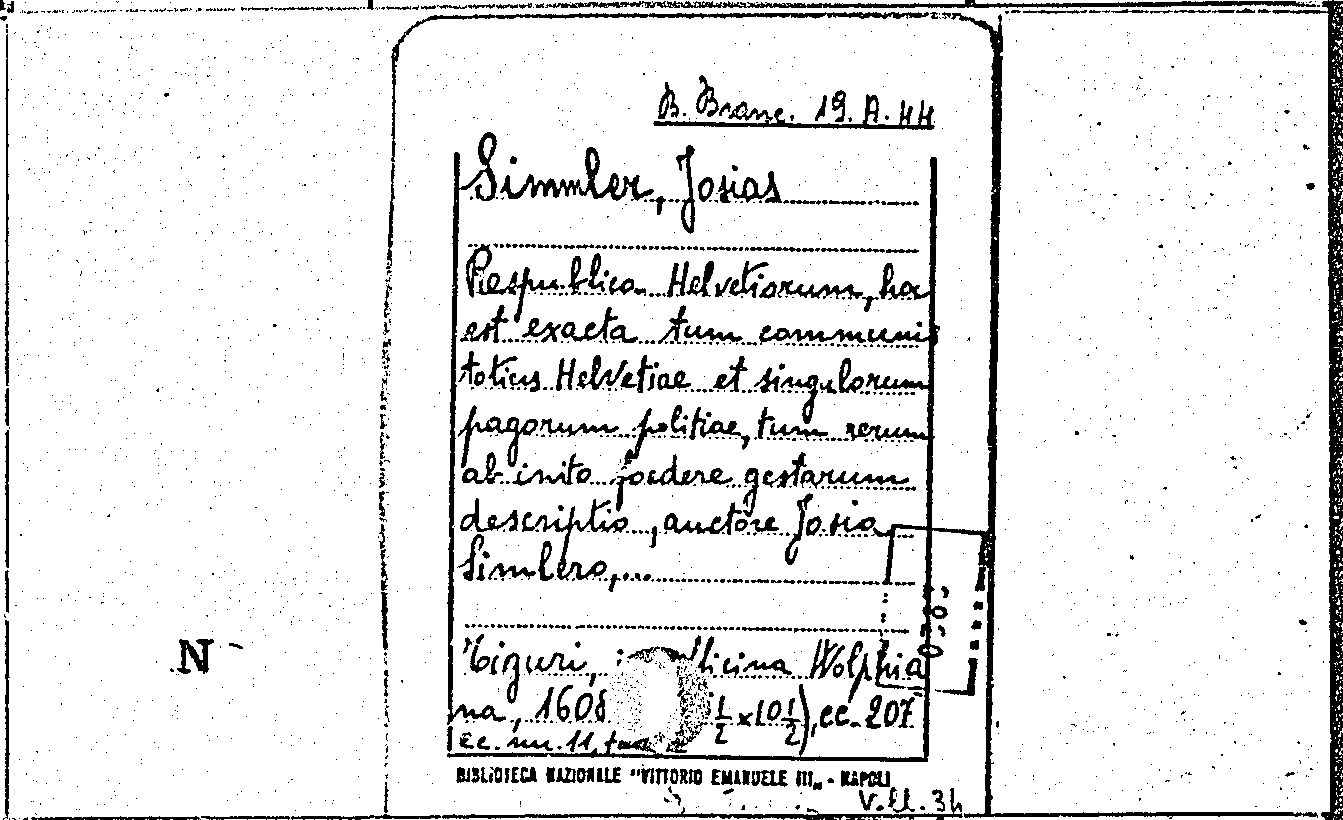 B. Branc. 19. A. 44
Simmler, Josias
Respublica Helvetiorum, hoc
est exacta tum communis
totius Helvetiae et singulorum
pagorum politiae, tum rerum
ab inito foedere gestarum
descriptio, auctore Josia
Simlero,...
Tiguri, Wolphia
na, 1608 1/2 x 10 1/2), cc. 207
cc. nn. 11,
BIBLIOTECA NAZIONALE "VITTORIO EMANUELE III„ - NAPOLI
N